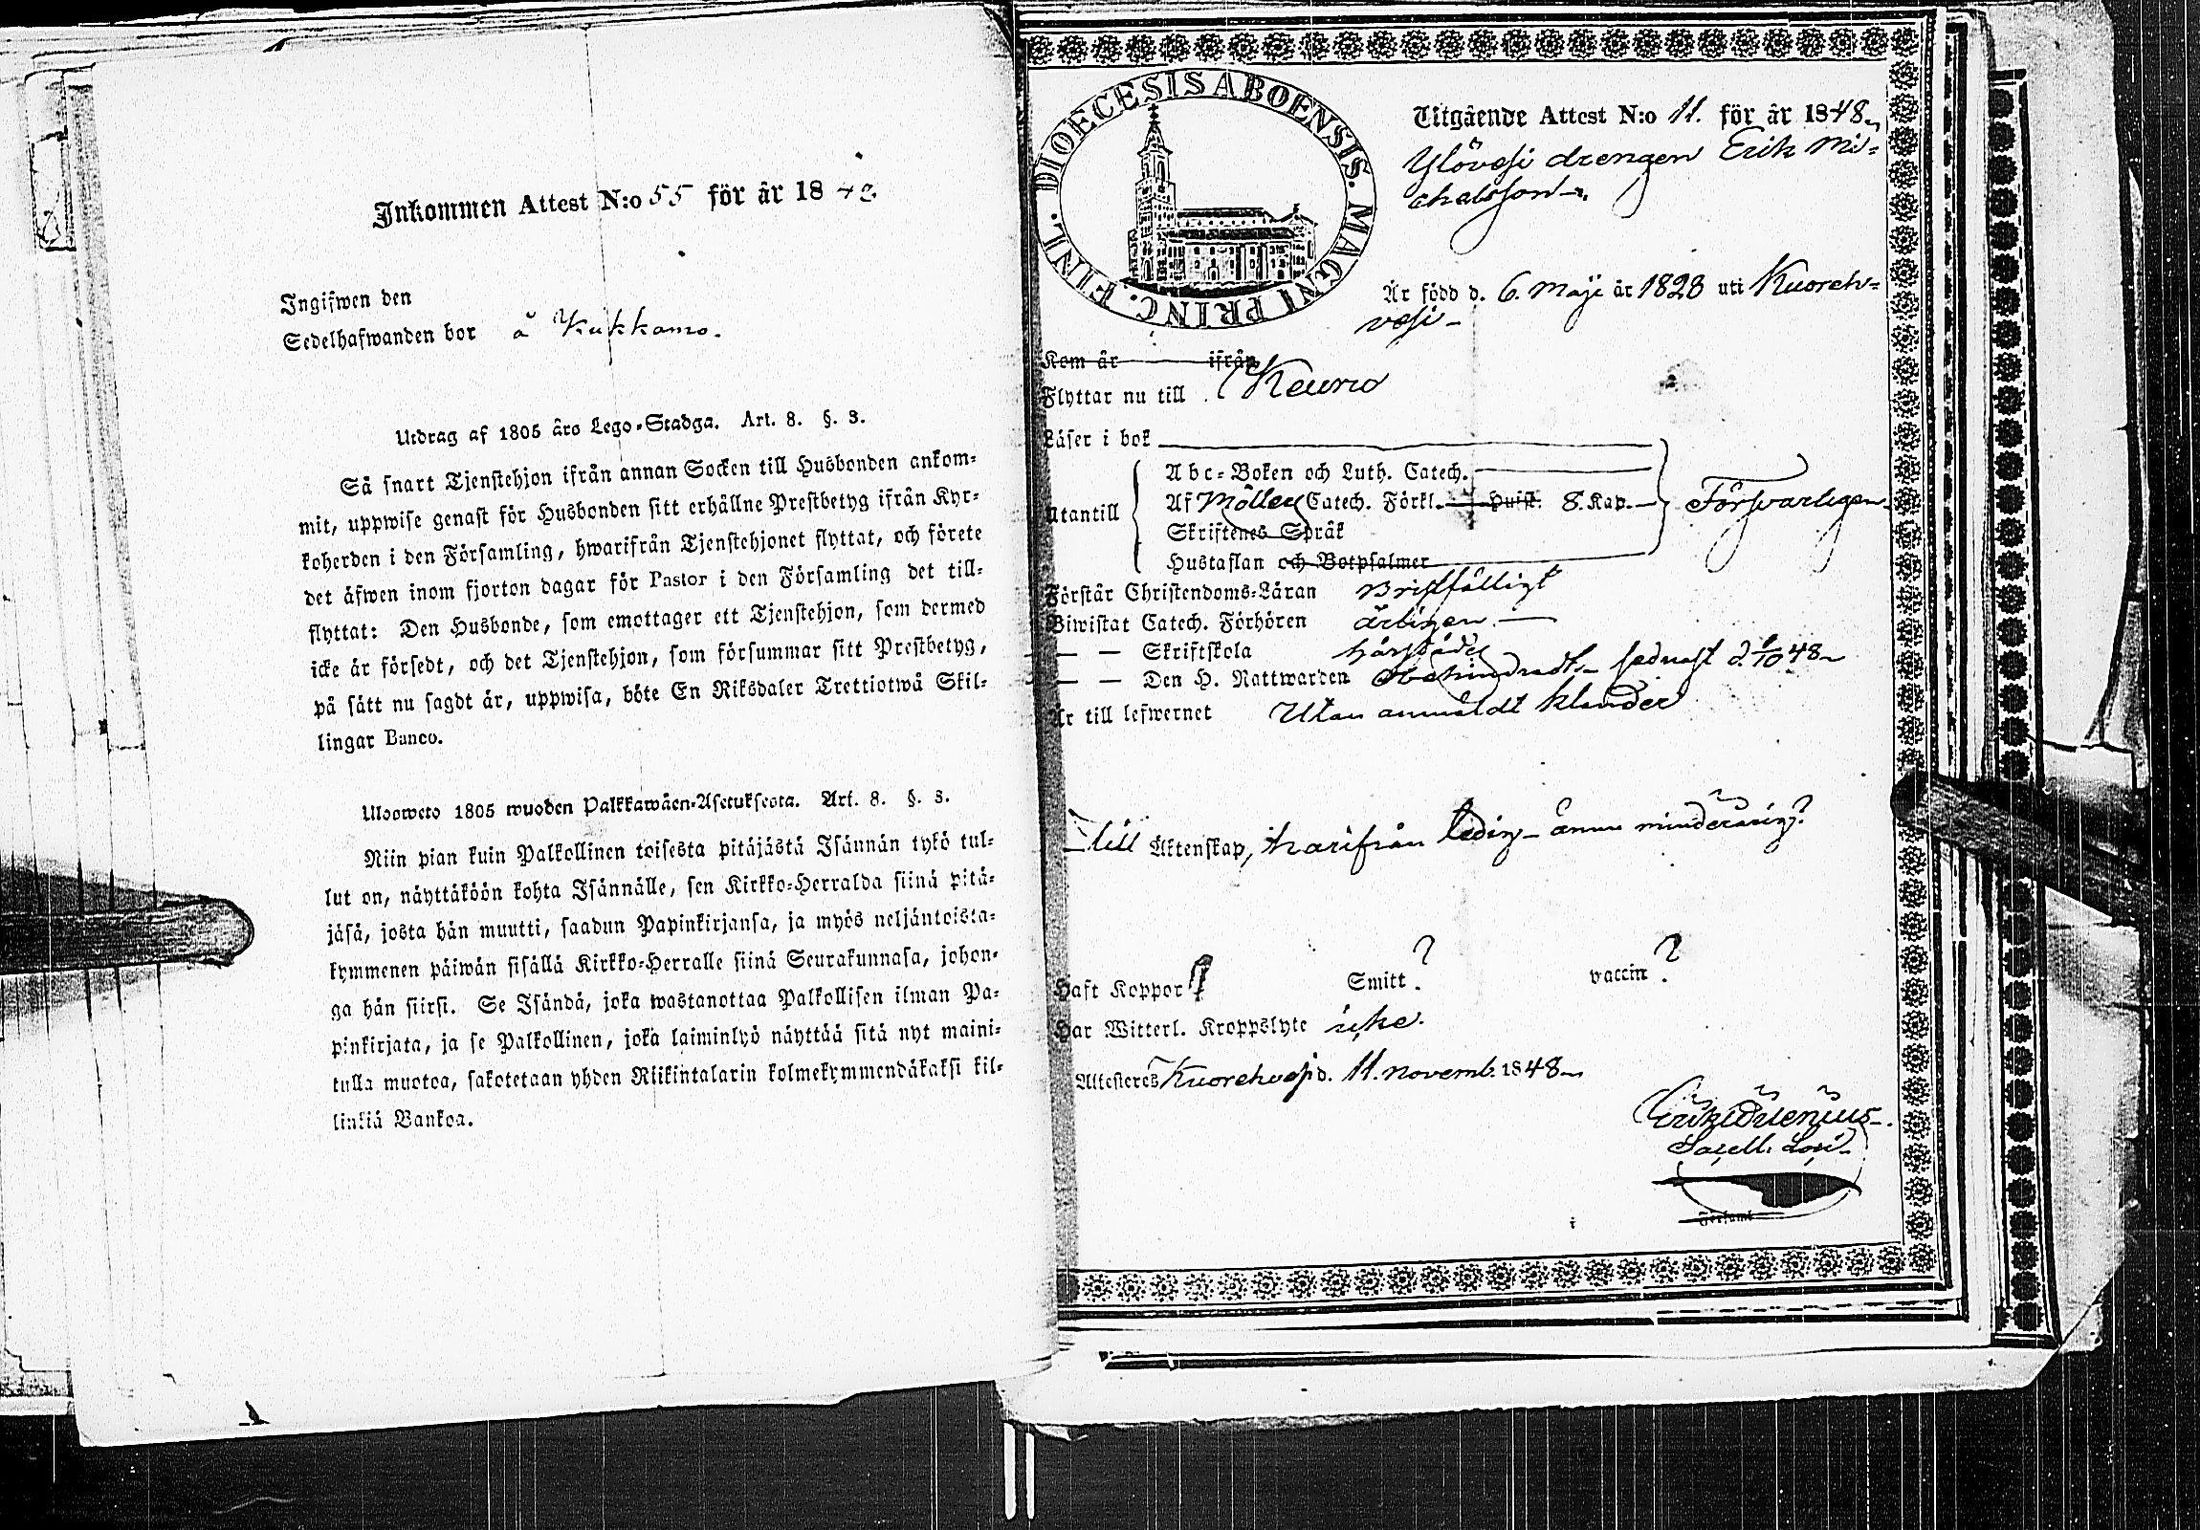 Inkommen Attest N:o 55 för år 18
Ingifwen den
Sedelhafwanden bor å Kukkamo.
Utdrag af 1805 års Lego-Stadga. Art. 8. §. 3.
Så snart Tjenstehjon ifrån annan Socken till Husbonden ankom-
mit, uppwise genast för Husbonden sitt erhållne Prestbetyg ifrån Kyr-
koherden i den Församling, hwarifrån Tjenstehjonet flyttat, och förete
det äfwen inom fjorton dagar för Pastor i den Församling det till-
flyttat: Den Husbonde, som emottager ett Tjenstehjon, som dermed
icke är försedt, och det Tjenstehjon, som försummar sitt Prestbetyg,
på sätt nu sagdt är, uppwisa, böte En Riksdaler Trettiotwå Skil-
lingar Banco.
Ulooweto 1805 wuoden Palkkawäen-Asetuksesta. Art. 8. §. 3.
Niin pian kuin Palkollinen toisesta pitäjästä Isännän tykö tul-
lut on, näyttäköön kohta Isännälle, sen Kirkko-Herralda siinä pitä-
jäsä, josta hän muutti, saadun Papinkirjansa, ja myös neljäntoista-
kymmenen päiwän sisällä Kirkko-Herralle siinä Seurakunnasa, johon-
ga hän siirsi. Se Isändä, joka wastanottaa Palkollisen ilman Pa-
pinkirjata, ja se Palkollinen, joka laiminlyö näyttää sitä nyt maini-
tulla muotoa, sakotetaan yhden Riikintalarin kolmekymmendäkaksi kil-
linkiä Bankoa.
DIOECESIS ABOENSIS. MAGNI PRINC. FINL.
Utgående Attest N:o 11. för år 1848
Ylövesi drengen Erik Mi-
chelsson
Är född d. 6. Maji år 1828 uti Kuoreh-
vesi
Kom år ifrån
Flyttar nu till Keuru
Läser i bok
Abc-Boken och Luth. Catech.
Utantill Af Möllers Catech. Förkl. Huist. 8. Kap. Försvarligen
Skriftenes Språk
Hustaflan och Botpsalmer
Förstår Christendoms-Läran Bristfälligt
Biwistat Catech. Förhören årligen
— — Skriftskola härstädes
— — Den H. Nattwarden Obehindradt sednast d. 8/10 48
Är till lefwernet Utan anmäldt klander
till Äktenskap, härifrån ledig ännu minderårig?
Haft Koppor? Smitt? vaccin?
Har Witterl. Kroppslyte icke.
Attesteres Kuorehvesi d. 11. novemb. 1848
Sacell. Loci
Församl